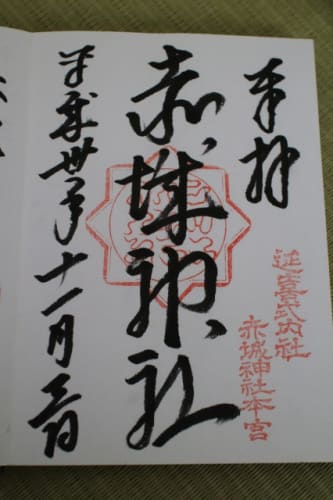 奉拝
延喜式内社
赤城神社本宮
赤城神社
平成廿年十一月三日